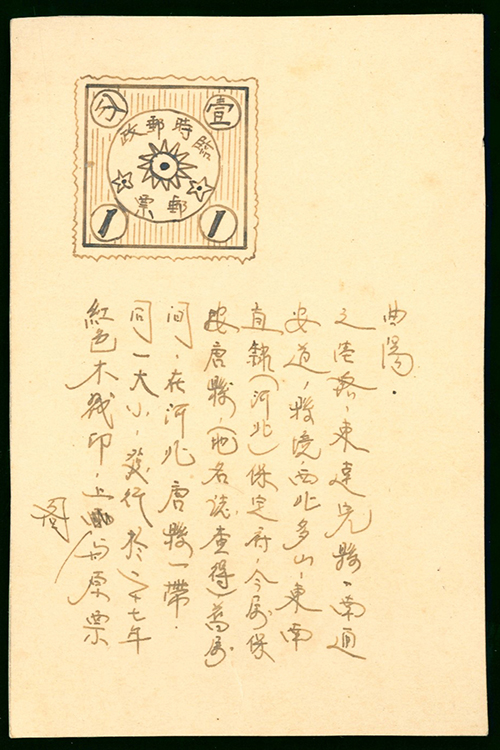 壹分
臨時郵政
郵票
1 1
紅色木戳印,上圖与原票
同一大小,發行於二十七年
间,在河北唐縣一帶.
按唐縣,(地名誌查得)舊属
直隸(河北)保定府,今属保
安道,縣境西北多山,東南
之路,東達完縣,南通
曲陽.